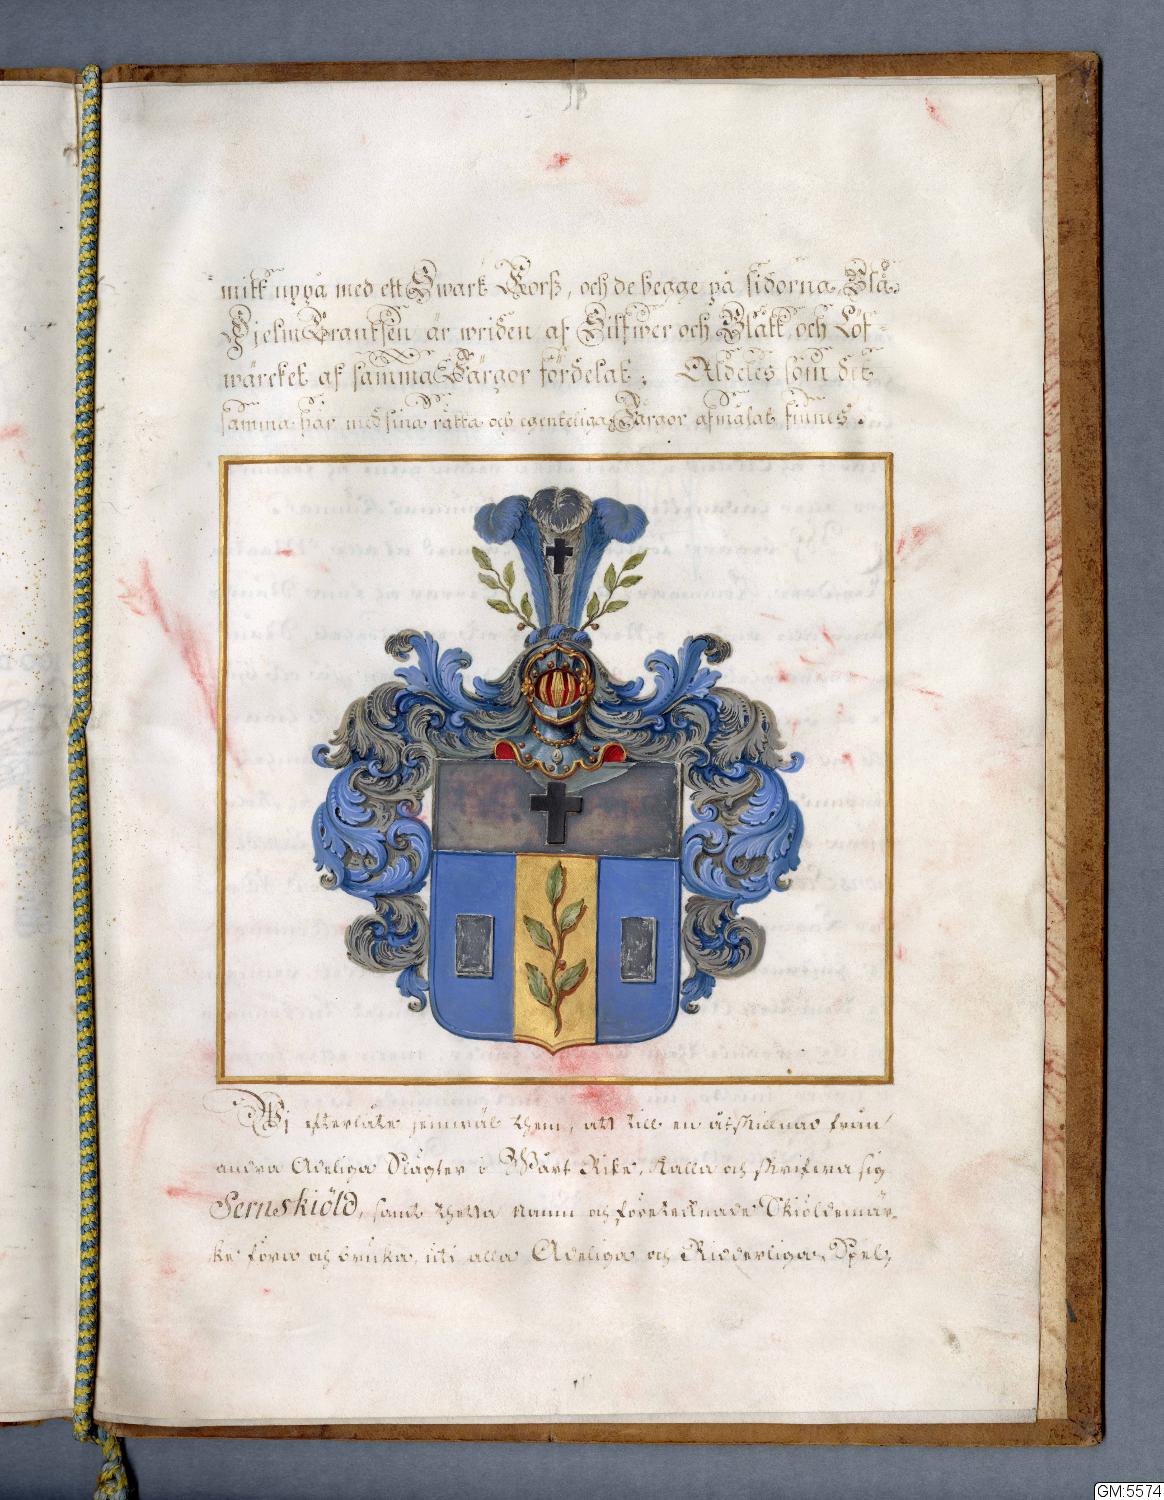 mitt uppå med ett Swart Kors, och de begge på sidorna Blå.
HjelmKrantsen är wriden af Silfwer och Blått, och Löf-
wärcket af samma Färgor fördelat; Aldeles som det
samma här med sina rätta och egenteliga Färgor afmålat finnes.
Wi efterlåte jemwäl them, att till en åtskillnad från
andra Adeliga Slägter i Wårt Rike, kalla och skrifwa sig
Sernskiöld, samt thetta namn och företeknade Skiöldemär-
ke föra och bruka, uti alla Adeliga och Ridderliga Spel,
GM:5574